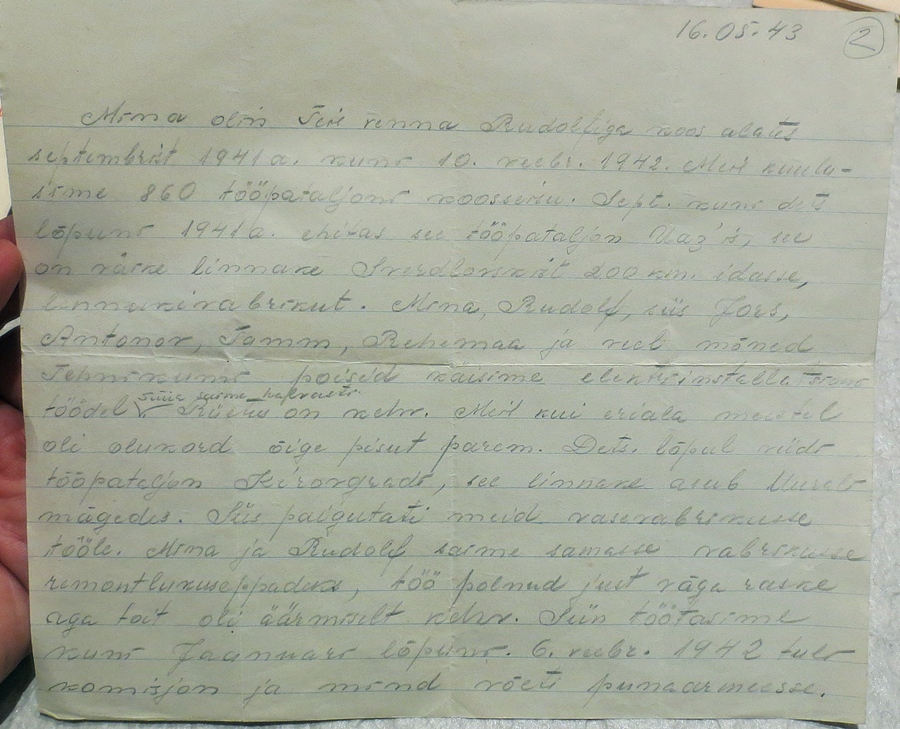 16.05.43 2
Mina olin Teie venna Rudolfiga koos alates
septembrist 1941 a. kuni 10. veebr. 1942. Meie kuulu-
sime 860 tööpataljoni koosseisu. Sept. kuni dets
lõpuni 1941 a. ehitas see tööpataljon Uaz'is, see
on väike linnake Sverdlovskist 200 km. idasse,
lennukivabrikut. Mina, Rudolf, siis Jors,
Antonov, Tamm, Rehemaa ja veel mõned
Tehnikumi poisid käisime elektriinstallatsiooni
süüa saime halvasti
töödel on kehv. Meil kui eriala meistel
oli olukord õige pisut parem. Dets. lõpul viidi
tööpataljon Kirovgradi, see linnake asub Uurali
mägedes. Siis paigutati meid vasevabrikusse
tööle. Mina ja Rudolf saime samasse vabrikusse
remontlukuseppadeks, töö polnud just väga raske
aga toit oli äärmiselt kehv. Siin töötasime
kuni Jaanuari lõpuni. 6. veebr. 1942 tuli
komisjon ja mind võeti punaarmeesse.